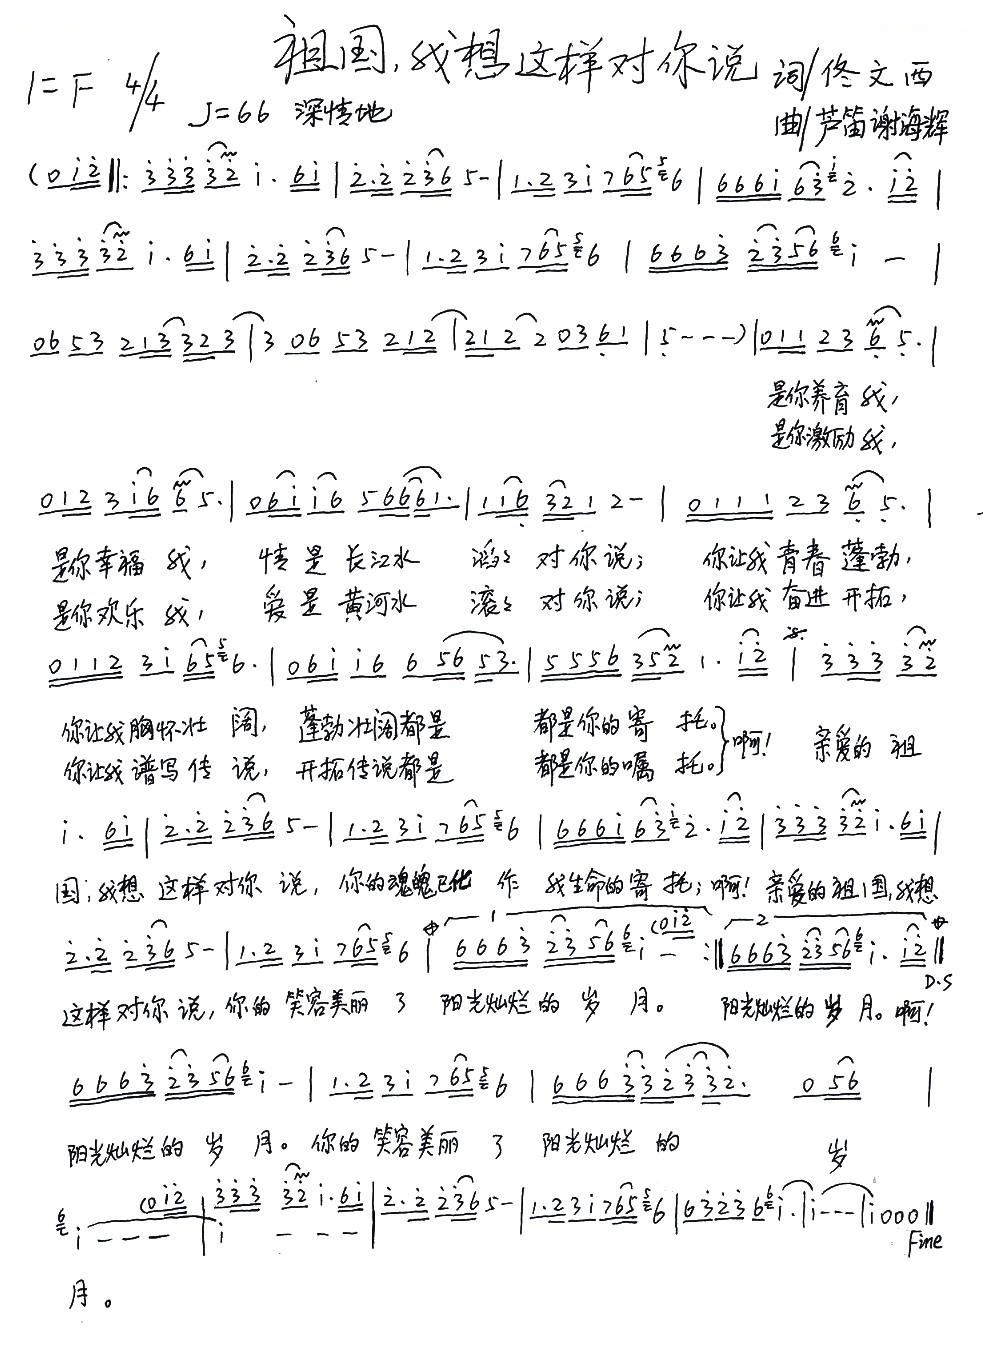 祖国,我想这样对你说
词/佟文西
1=F 4/4 ♩=66 深情地
曲/芦笛 谢海辉
(0 i 2 ‖: 3 3 3 3 2 i · 6 i | 2 · 2 2 3 6 5 - | 1 · 2 3 i 7 6 5 6 | 6 6 6 i 6 3 2 · i 2 |
3 3 3 3 2 i · 6 i | 2 · 2 2 3 6 5 - | 1 · 2 3 i 7 6 5 6 | 6 6 6 3 2 3 5 6 i - |
0 6 5 3 2 1 3 3 2 3 | 3 0 6 5 3 2 1 2 | 2 1 2 2 0 3 6 1 | 5 - - - ) | 0 1 1 2 3 6 5 · |
是你养育我,
是你激励我,
0 1 2 3 i 6 6 5 · | 0 6 i i 6 5 6 6 6 1 · | 1 1 6 3 2 1 2 - | 0 1 1 1 2 3 6 5 · |
是你幸福我, 情是长江水 滔滔对你说; 你让我青春蓬勃,
是你欢乐我, 爱是黄河水 滚滚对你说; 你让我奋进开拓,
0 1 1 2 3 i 6 5 6 · | 0 6 i i 6 6 5 6 5 3 · | 5 5 5 6 3 5 2 1 · i 2 | 3 3 3 3 2
你让我胸怀壮阔, 蓬勃壮阔都是 都是你的寄托。} 啊! 亲爱的祖
你让我谱写传说, 开拓传说都是 都是你的嘱托。
i · 6 i | 2 · 2 2 3 6 5 - | 1 · 2 3 i 7 6 5 6 | 6 6 6 i 6 3 2 · i 2 | 3 3 3 3 2 i · 6 i |
国,我想这样对你说, 你的魂魄已化作我生命的寄托; 啊! 亲爱的祖国,我想
2 · 2 2 3 6 5 - | 1 · 2 3 i 7 6 5 6 | 1 6 6 6 3 2 3 5 6 i (0 i 2 - :‖ 2 6 6 6 3 2 3 5 6 i · i 2 ‖
D.S
这样对你说, 你的笑容美丽了阳光灿烂的岁月。 阳光灿烂的岁月。啊!
6 6 6 3 2 3 5 6 i - | 1 · 2 3 i 7 6 5 6 | 6 6 6 3 3 2 3 3 2 · 0 5 6 |
阳光灿烂的岁月。你的笑容美丽了阳光灿烂的 岁
i - - - (0 i 2 | 3 3 3 3 2 i · 6 i | 2 · 2 2 3 6 5 - | 1 · 2 3 i 7 6 5 6 | 6 3 2 3 6 i · | i - - - | i 0 0 0 ‖
i - - -
Fine
月。